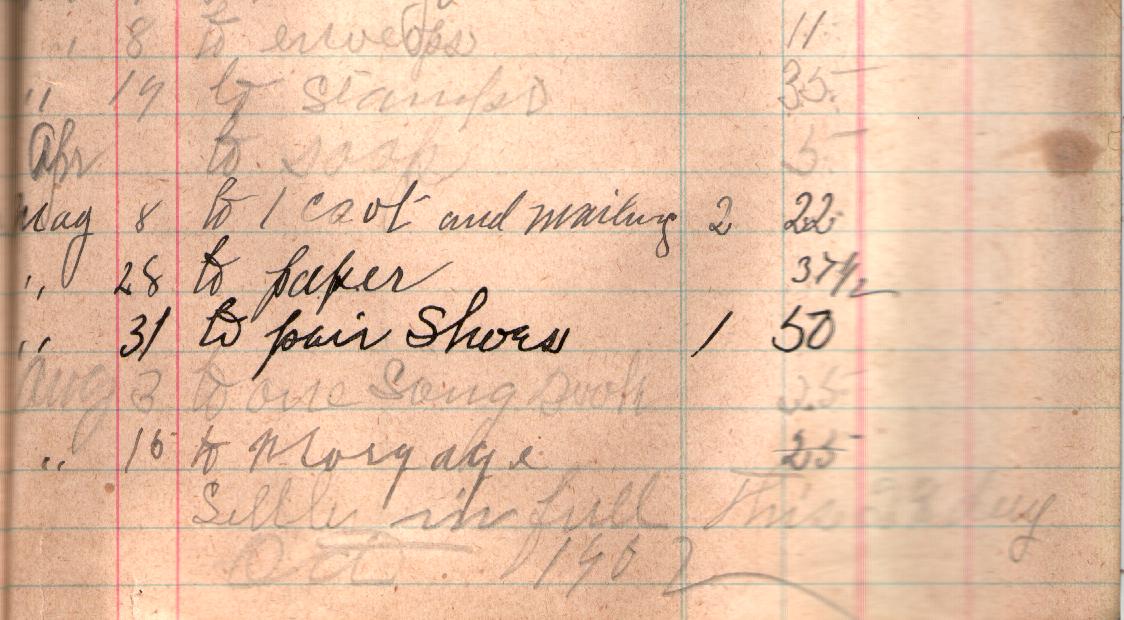 " 8 to envelops 11
" 19 to stamps 35
Apr to soap 5
May 8 to 1 coat and mailing 2 22
" 28 to paper 37 1/2
" 31 to pair Shoes 1 50
Aug 3 to one Song Book 25
" 15 to Morgage 25
in full this day
Oct 1902